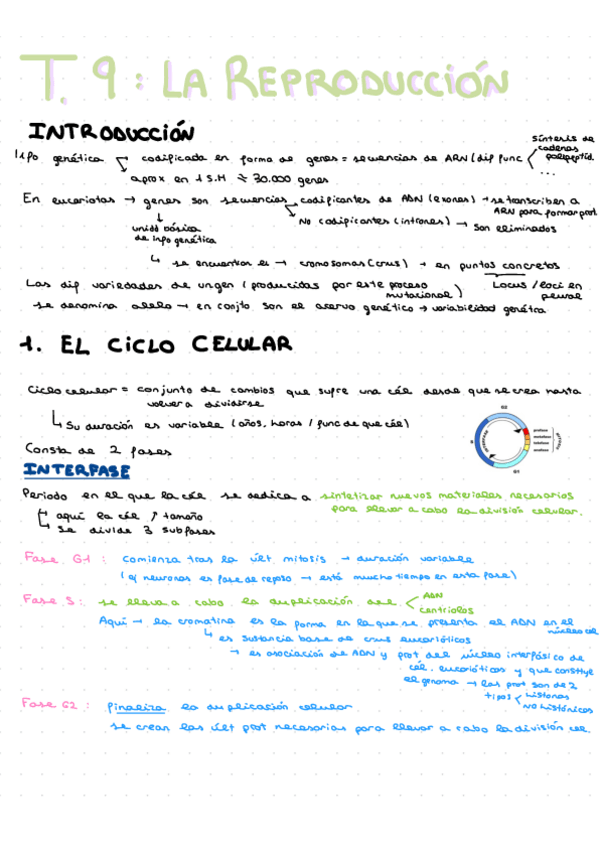 T. 9: LA REPRODUCCIÓN
INTRODUCCIÓN
síntesis de
cadenas
polipeptíd.
...
Info genética codificada en forma de genes = secuencias de ARN (dif func
aprox en 1 S.H ≈ 30.000 genes
En eucariotas → genes son secuencias codificantes de ADN (exones) → se transcriben a
ARN para formar prot
No codificantes (intrones) → son eliminados
unidd básica
de info genética
se encuentran en → cromosomas (crms) → en puntos concretos
Las dif variedades de un gen (producidas por este proceso
mutacional)
Locus / loci en
plural
se denomina alelo → en conjto son el acervo genético → variabilidad genética
1. EL CICLO CELULAR
Ciclo celular = conjunto de cambios que sufre una cél desde que se crea hasta
volver a dividirse
Su duración es variable (años, horas / func de que cél)
Consta de 2 fases
G2
profase
metafase
anafase
S
INTERFASE
G1
INTERFASE
Periodo en el que la cél se dedica a sintetizar nuevos materiales necesarios
para llevar a cabo la división celular.
aquí la cél ↑ tamaño
se divide 3 subfases
Fase G1: comienza tras la últ mitosis → duración variable
(ej neuronas es fase de reposo → está mucho tiempo en esta fase)
Fase S: se lleva a cabo la duplicación del < ADN
centriolos
Aquí → la cromatina es la forma en la que se presenta el ADN en el
núcleo cél
es sustancia base de crms eucarióticos
→ es asociación de ADN y prot del núcleo interfásico de
cél. eucarióticas y que constituye
el genoma → las prot son de 2
tipos < histonas
No histónicas
Fase G2: Finaliza la duplicación celular
se crean las últ prot necesarias para llevar a cabo la división cél.